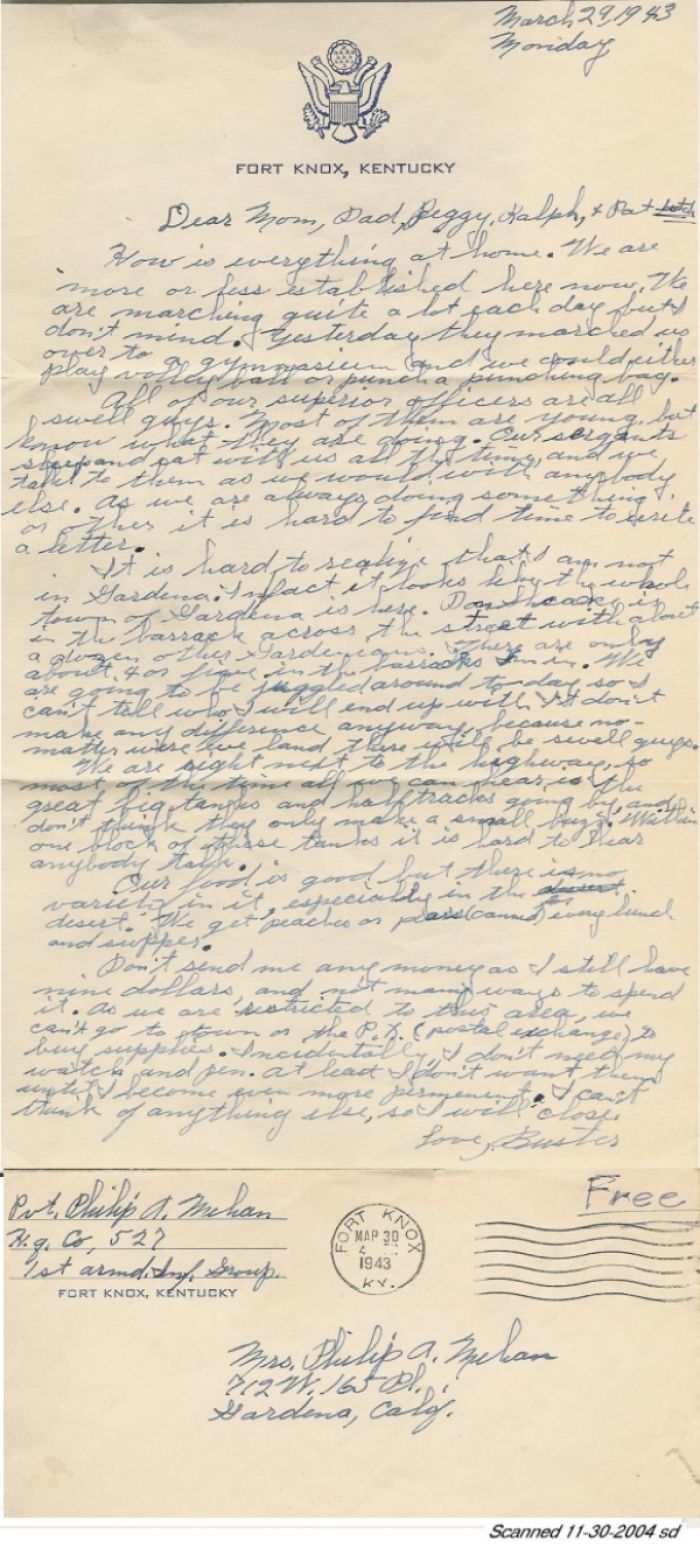 March 29, 1943
Monday
FORT KNOX, KENTUCKY
Dear Mom, Dad, Peggy, Ralph, + Pat
How is everything at home. We are
more or less established here now. We
are marching quite a lot each day but I
don't mind. Yesterday they marched us
over to a gymnasium and we could either
play volley ball or punch a punching bag.
All of our superior officers are all
swell guys. Most of them are young, but
know what they are doing. Our sergants
sleep and eat with us all the time, and we
talk to them as we would with anybody
else. As we are always doing something
or other it is hard to find time to write
a letter.
It is hard to realize that I am not
in Gardena. Infact it looks like the whole
town of Gardena is here. Don is
in the barrack across the street with about
a dozen other Gardenians. There are only
about 4 or five in the barracks Im in. We
are going to be juggled around to-day so I
can't tell who I will end up with. It don't
make any difference anyway, because no-
matter were we land there will be swell guys.
We are right next to the highway, so
most of the time all we can hear is the
great big tanks and halftracks going by, and
don't think they only make a small buzz. Within
one block of these tanks it is hard to hear
anybody talk.
Our food is good but there is no
variety in it, especially in the desert
desert. We get peaches or pears (canned) for every lunch
and supper.
Don't send me any money as I still have
nine dollars, and not many ways to spend
it. As we are restricted to this area, we
can't go to town or the P.X. (postal exchange) to
buy supplies. Incidentally, I don't need my
watch and pen. At least I don't want them
until I become even more permenent. I can't
think of anything else, so I will close.
Love, Buster
Pvt. Philip A. Mehan
H.q. Co, 527
1st armd. Inf. Group.
FORT KNOX, KENTUCKY
FORT KNOX
MAR 30
4
1943
KY.
Free
Mrs. Philip A. Mehan
712 W. 165 Pl.
Gardena, Calif.
Scanned 11-30-2004 sd